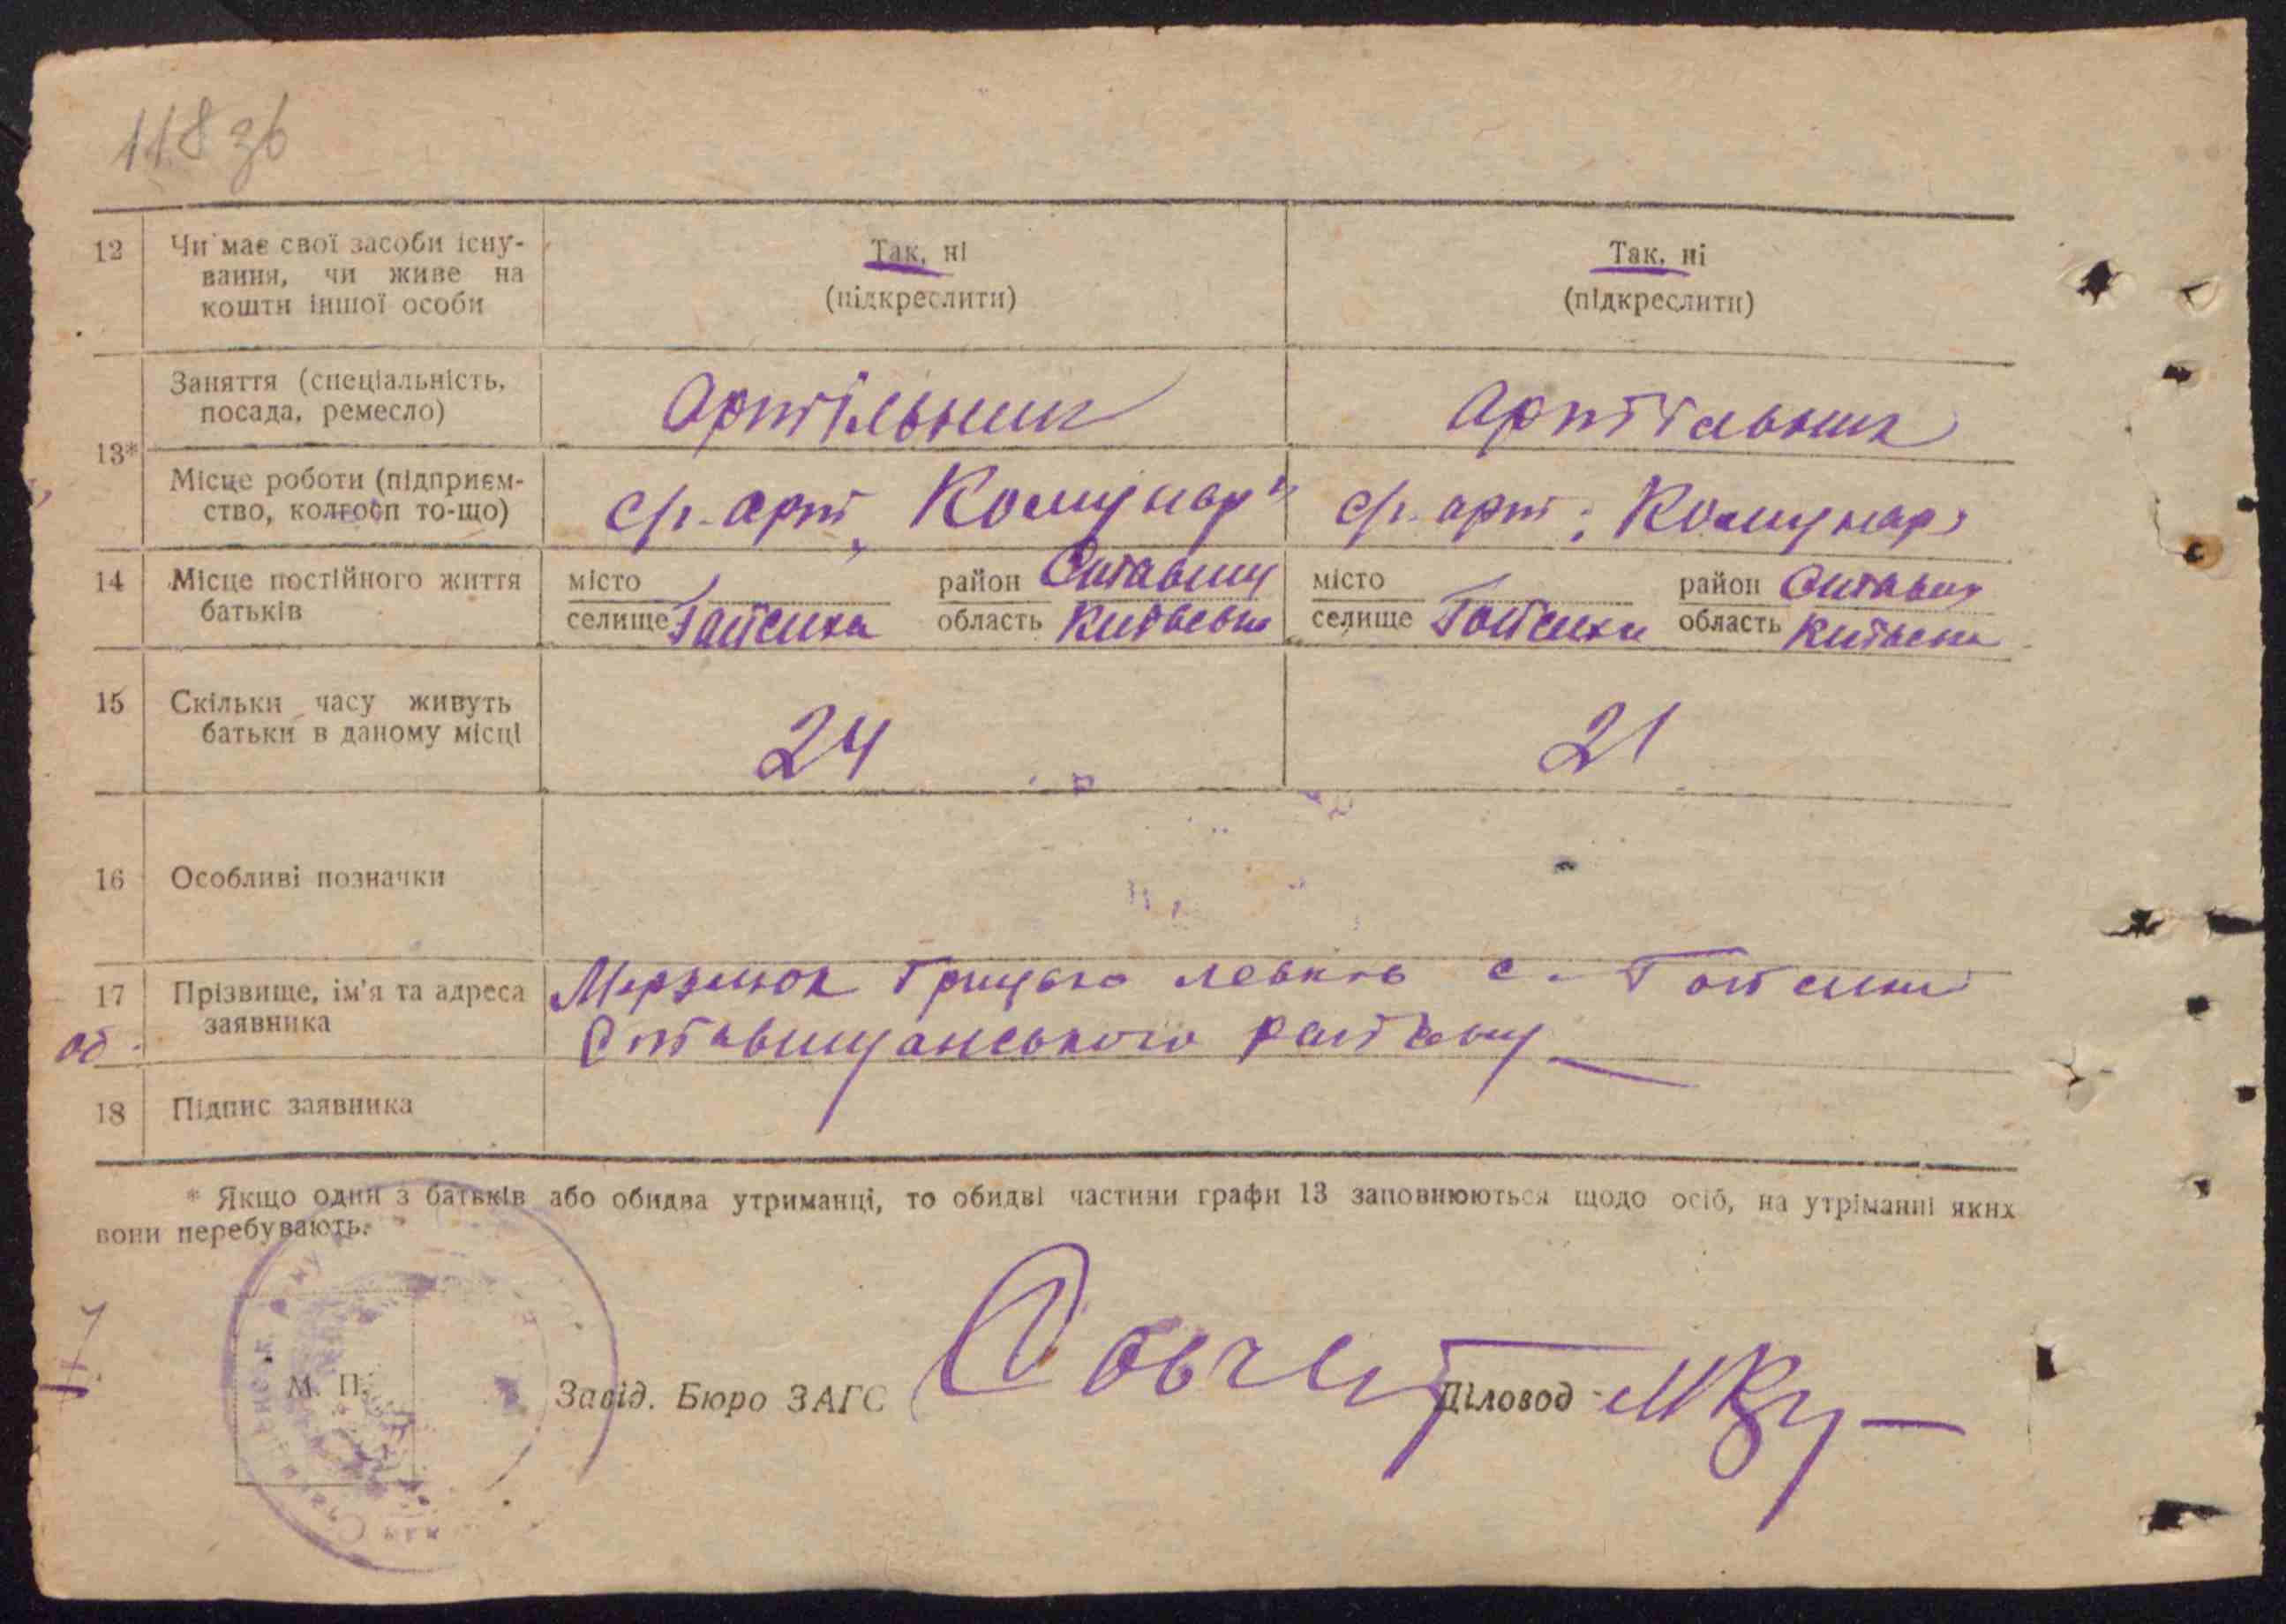 118 зв
12 Чи має свої засоби існу-
вання, чи живе на
кошти іншої особи
Так, ні
(підкреслити)
Так, ні
(підкреслити)
13*
Заняття (спеціальність,
посада, ремесло)
Артільник
Артільник
Місце роботи (підприєм-
ство, колгосп то-що)
с/г. арт „Комунар"
с/г. арт „Комунар"
14 Місце постійного життя
батьків
місто
селище Гайсиха
район Ставищ
область Київська
місто
селище Гайсиха
район Ставищ
область Київська
15 Скільки часу живуть
батьки в даному місці
24
21
16 Особливі позначки
17 Прізвище, ім'я та адреса
заявника
Грицько с. Гайсихи
Ставищанського району
об
18 Підпис заявника
* Якщо один з батьків або обидва утриманці, то обидві частини графи 13 заповнюються щодо осіб, на утріманні яких
вони перебувають.
М. П.
Завід. Бюро ЗАГС
Діловод